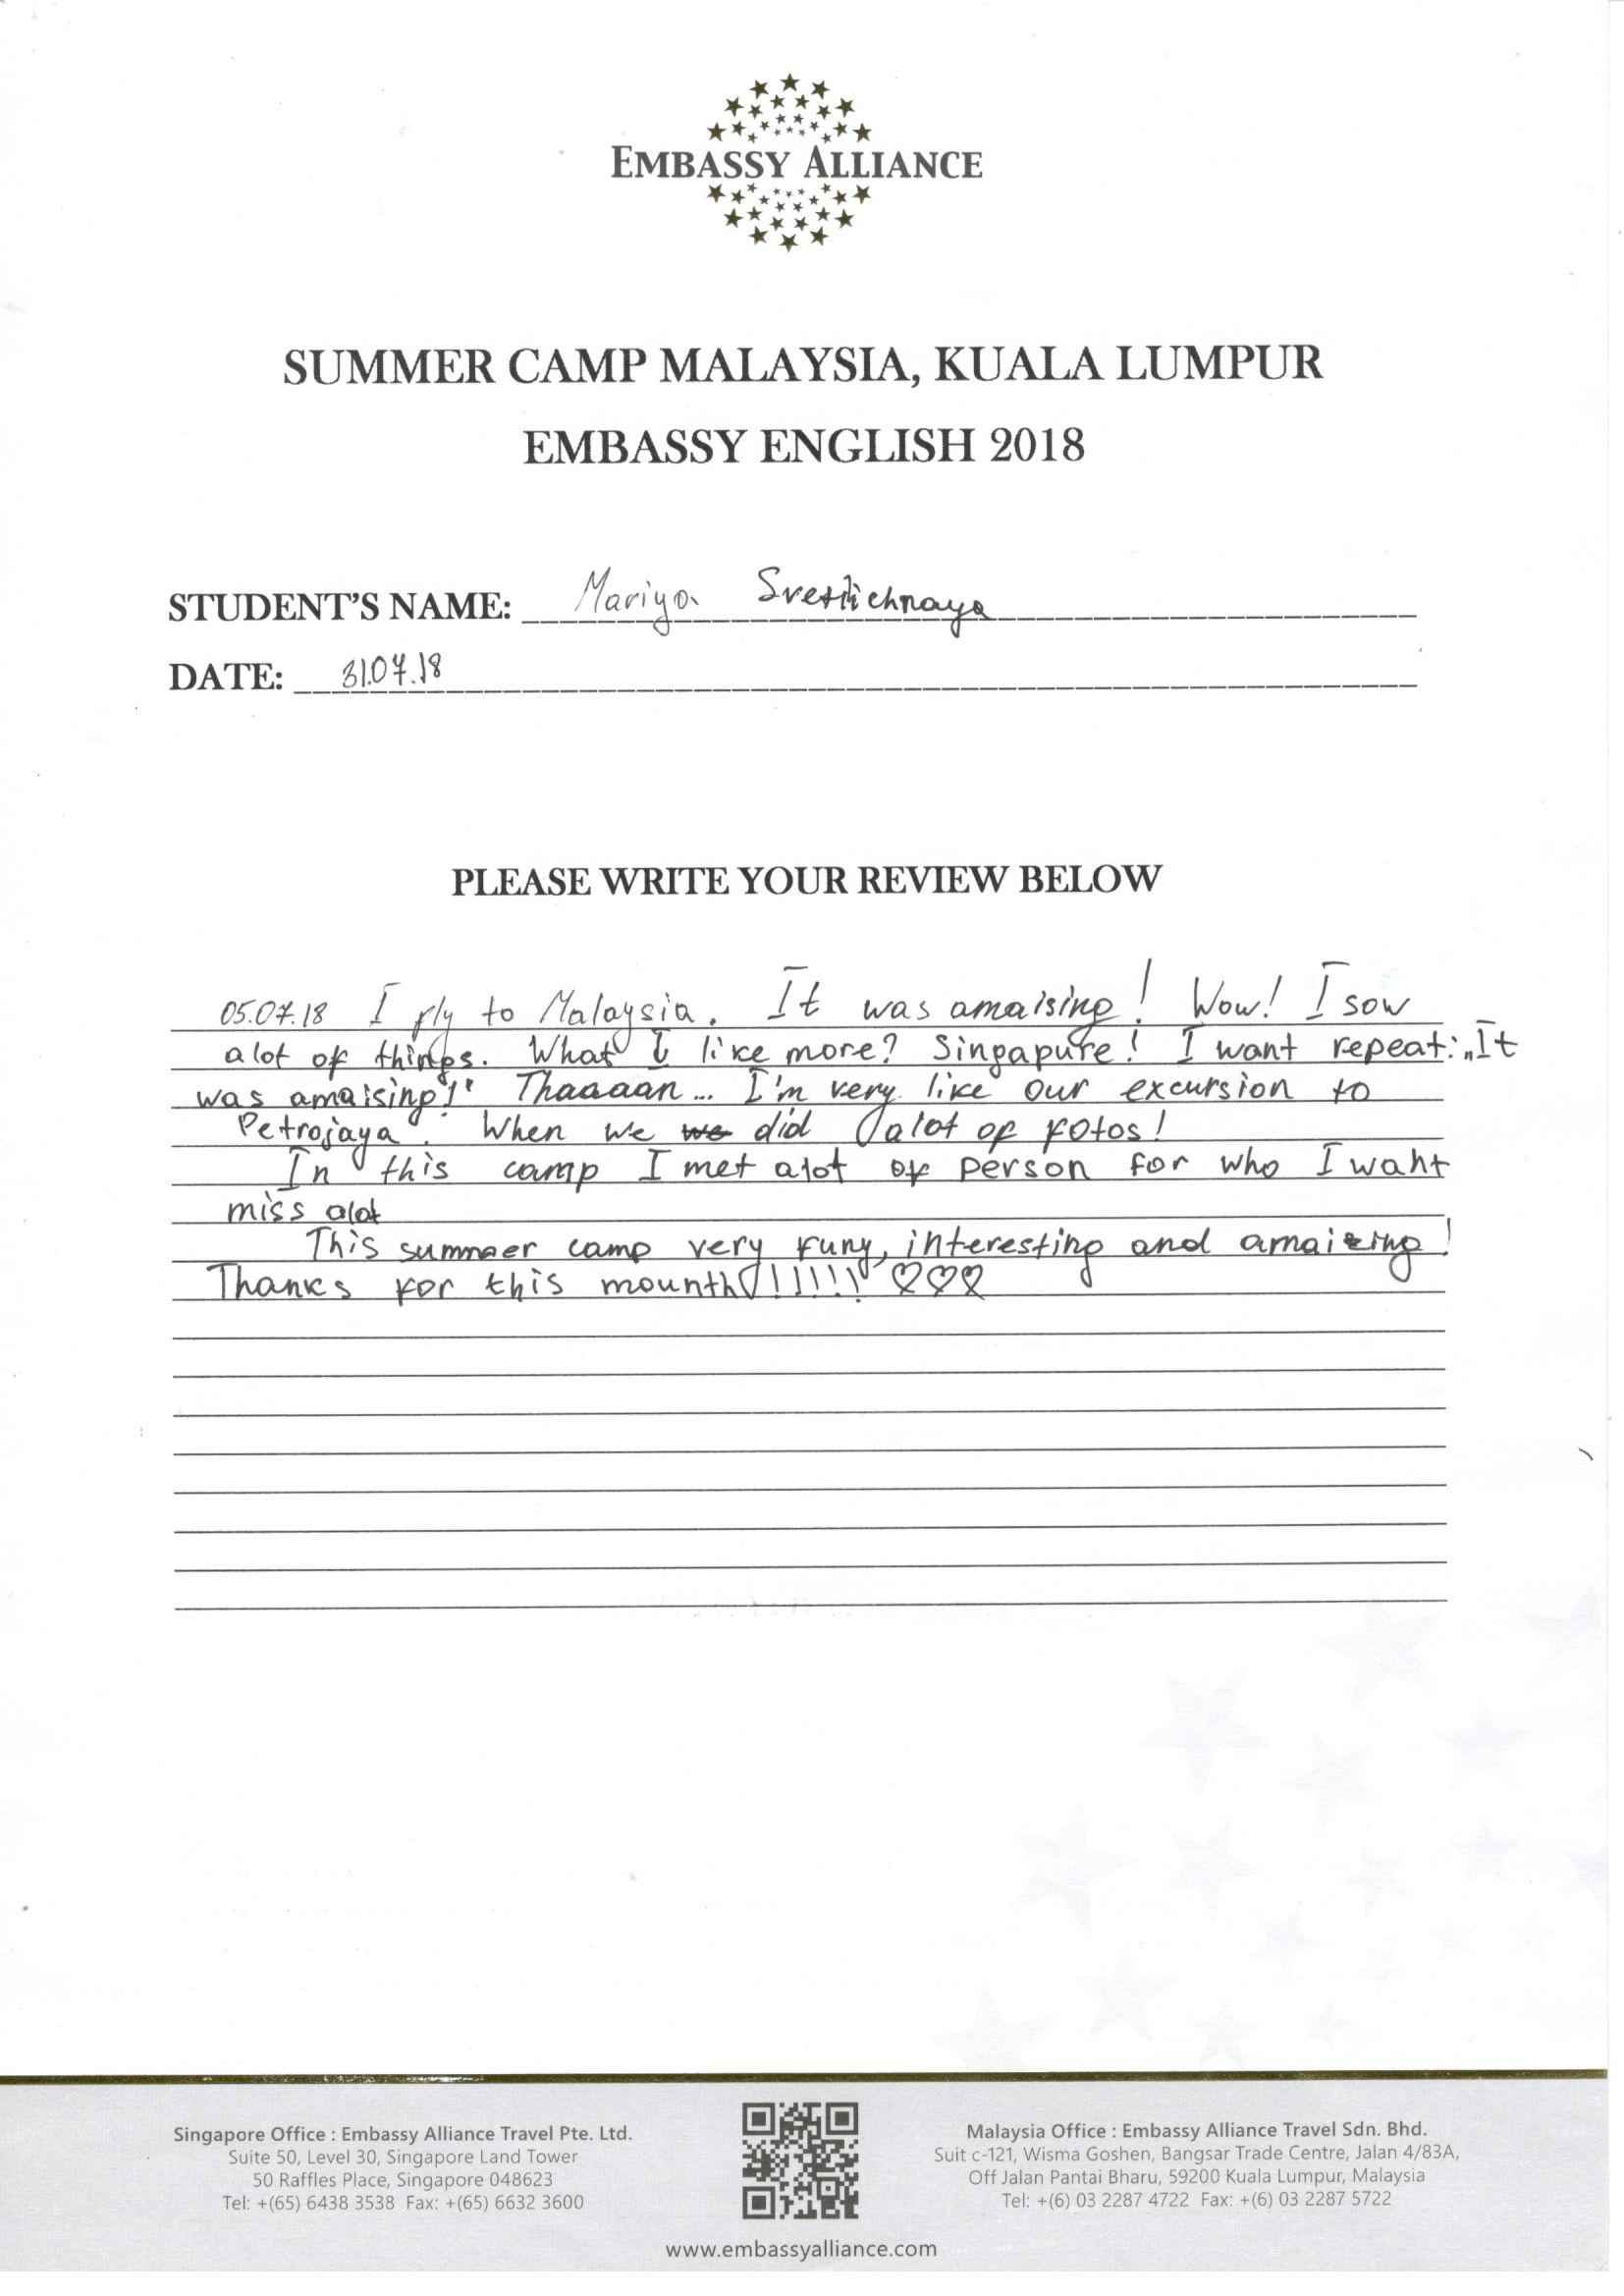 EMBASSY ALLIANCE
SUMMER CAMP MALAYSIA, KUALA LUMPUR
EMBASSY ENGLISH 2018
STUDENT'S NAME: Mariya Svetlichnaya
DATE: 31.07.18
PLEASE WRITE YOUR REVIEW BELOW
05.07.18 I fly to Malaysia. It was amaising! Wow! I sow
alot of things. What I like more? Singapure! I want repeat: „It
was amaising!" Thaaaan... I'm very like our excursion to
Petrojaya. When we we did alot of fotos!
In this camp I met alot of person for who I waht
miss alot
This summer camp very funy, interesting and amaizing!
Thanks for this mounth!!!!!! ♡♡♡
Singapore Office : Embassy Alliance Travel Pte. Ltd.
Suite 50, Level 30, Singapore Land Tower
50 Raffles Place, Singapore 048623
Tel: +(65) 6438 3538 Fax: +(65) 6632 3600
Malaysia Office : Embassy Alliance Travel Sdn. Bhd.
Suit c-121, Wisma Goshen, Bangsar Trade Centre, Jalan 4/83A,
Off Jalan Pantai Bharu, 59200 Kuala Lumpur, Malaysia
Tel: +(6) 03 2287 4722 Fax: +(6) 03 2287 5722
www.embassyalliance.com